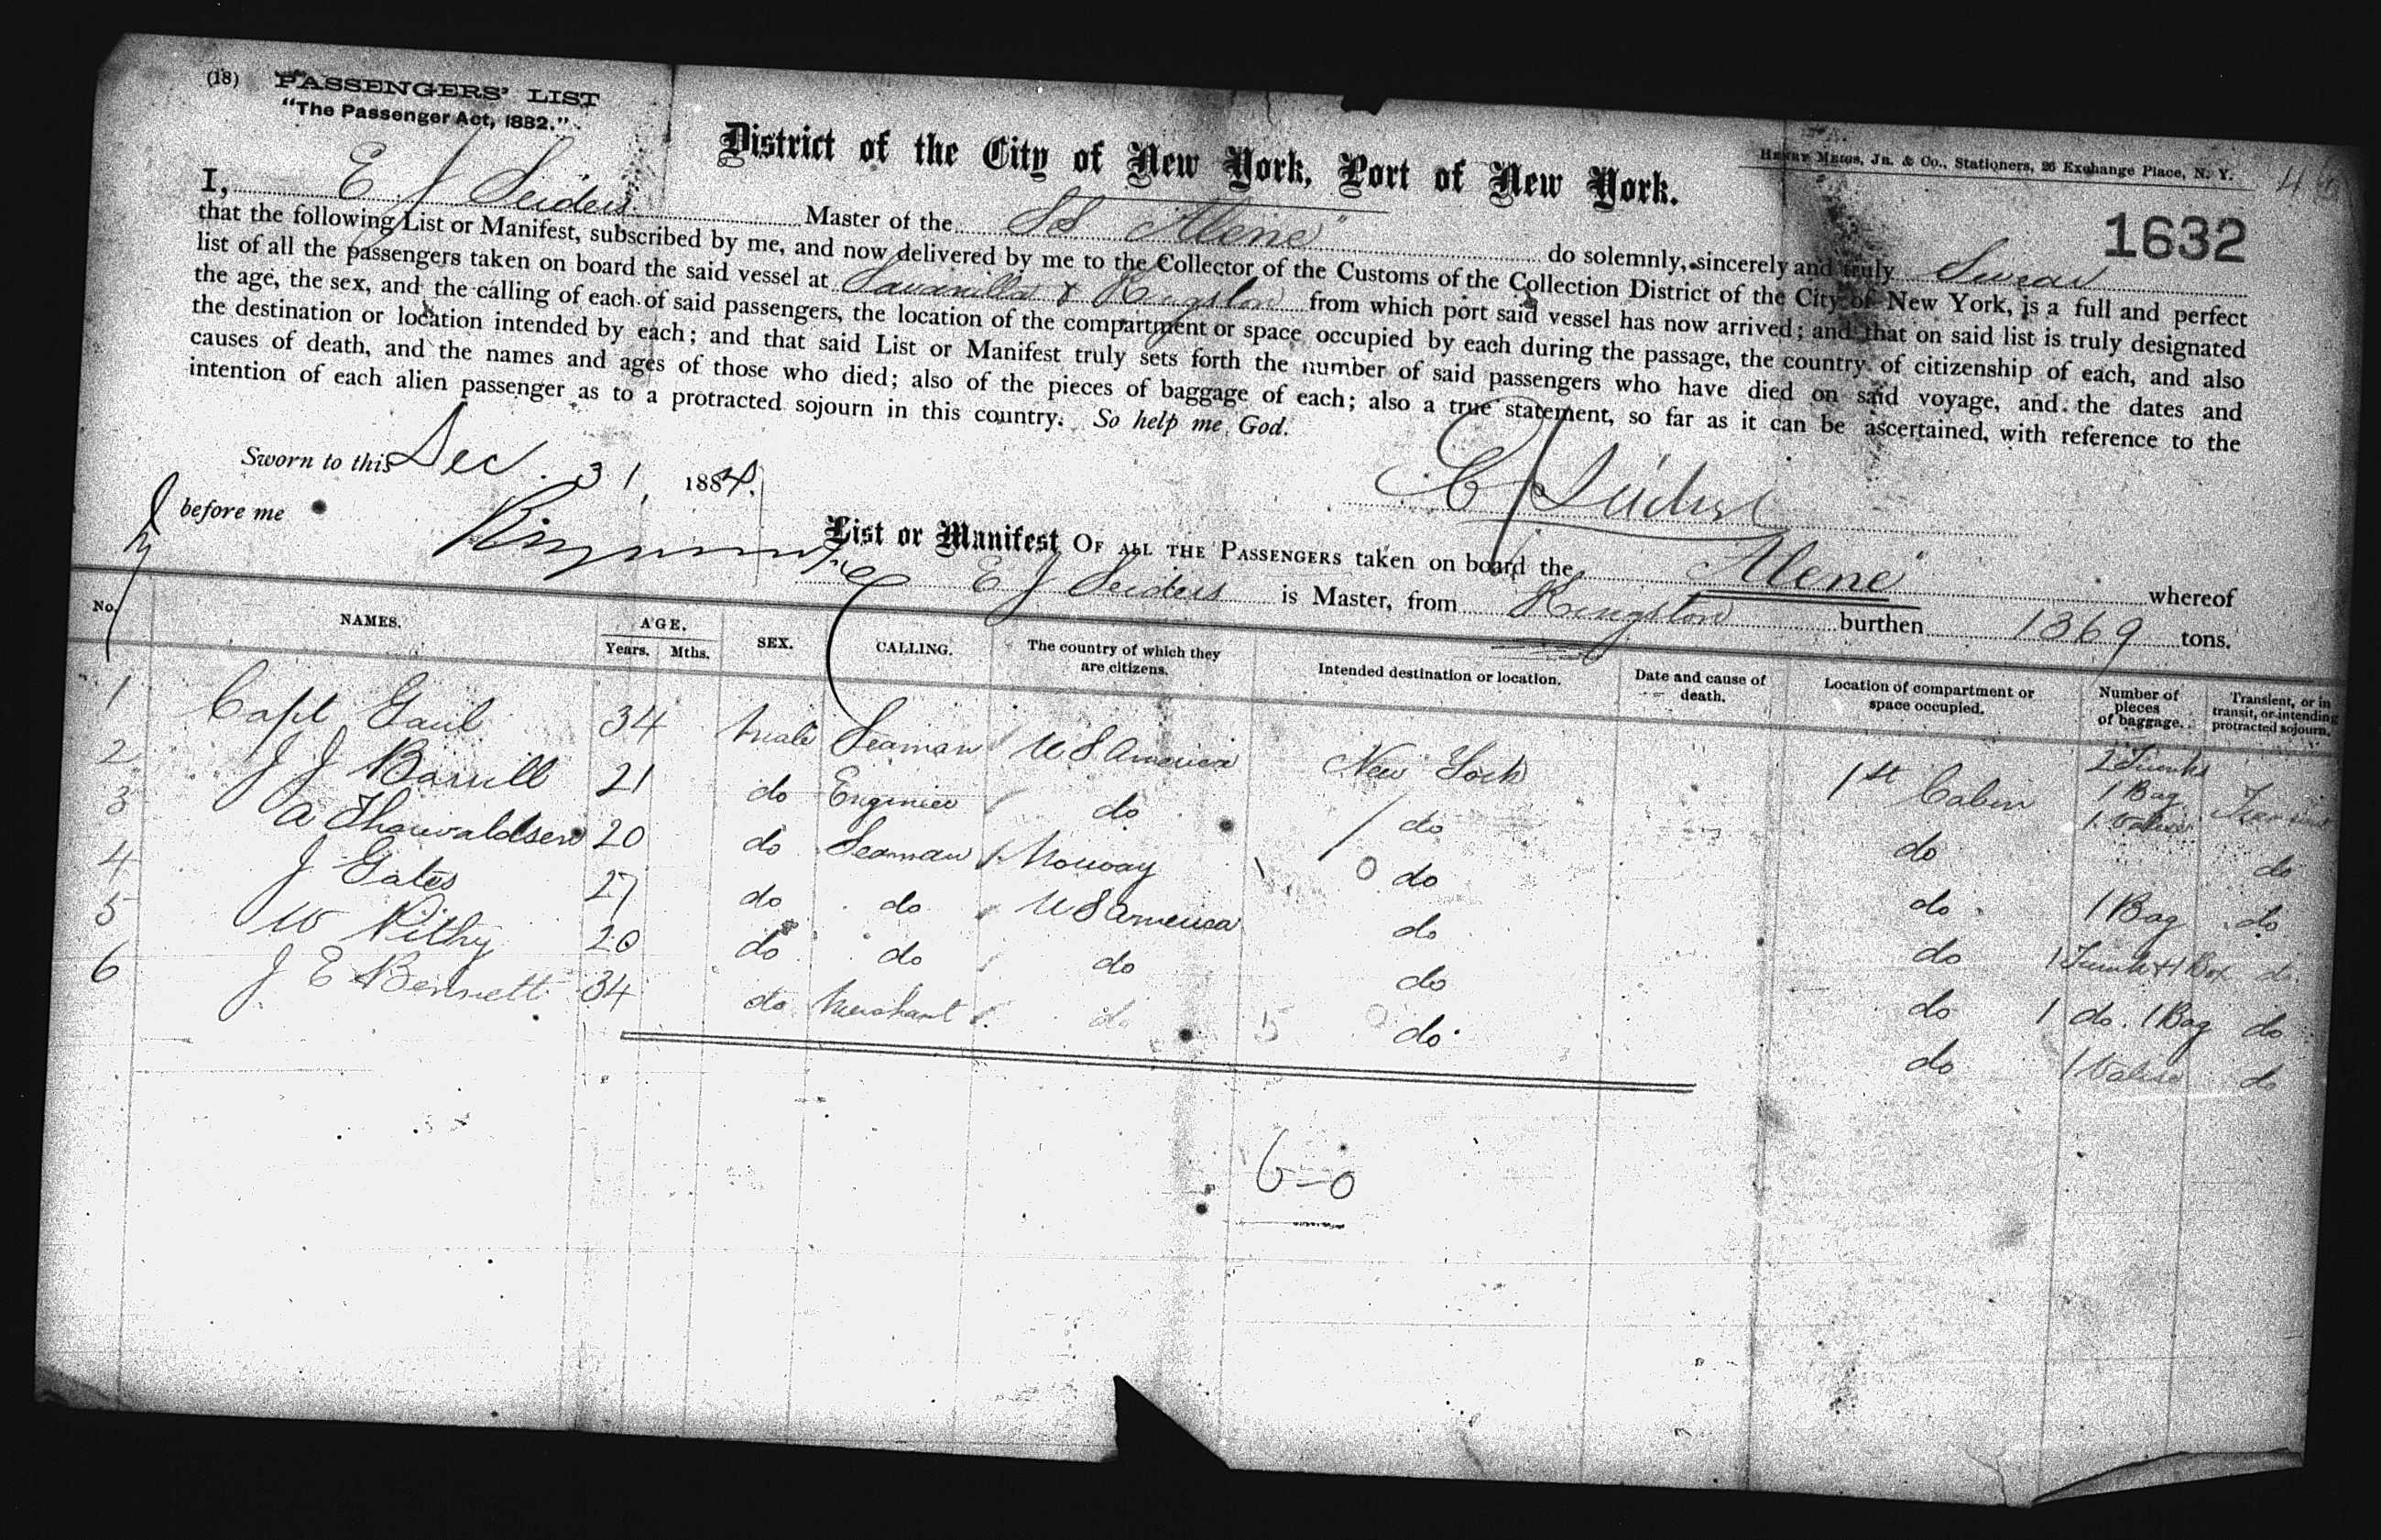 (18) PASSENGERS' LIST
"The Passenger Act, 1882."
District of the City of New York, Port of New York.
HENRY MEIGS, JR. & CO., Stationers, 26 Exchange Place, N. Y.
1632
I, E J Seiders Master of the SS "Alene" do solemnly, sincerely and truly Swear
that the following List or Manifest, subscribed by me, and now delivered by me to the Collector of the Customs of the Collection District of the City of New York, is a full and perfect
list of all the passengers taken on board the said vessel at Savanilla & Kingston from which port said vessel has now arrived; and that on said list is truly designated
the age, the sex, and the calling of each of said passengers, the location of the compartment or space occupied by each during the passage, the country of citizenship of each, and also
the destination or location intended by each; and that said List or Manifest truly sets forth the number of said passengers who have died on said voyage, and the dates and
causes of death, and the names and ages of those who died; also of the pieces of baggage of each; also a true statement, so far as it can be ascertained, with reference to the
intention of each alien passenger as to a protracted sojourn in this country. So help me God.
Sworn to this Dec. 31, 1884.
before me
E J Seiders
List or Manifest OF ALL THE PASSENGERS taken on board the "Alene" whereof
E J Seiders is Master, from Kingston burthen 1369 tons.
No. NAMES. AGE. Years. Mths. SEX. CALLING. The country of which they are citizens. Intended destination or location. Date and cause of death. Location of compartment or space occupied. Number of pieces of baggage. Transient, or in transit, or intending protracted sojourn.
1 Capt Gaul 34 Male Seaman U S America New York 1st Cabin 2 Trunks 1 Bag 1 Valise Transient
2 J J Barrill 21 do Engineer do do do do
3 A Thorvaldsen 20 do Seaman Norway do do 1 Bag do
4 J Gates 27 do do U S America do do 1 Trunk & 1 Box do
5 W Pithy 20 do do do do do 1 do. 1 Bag do
6 J E Bennett 34 do Merchant do do do 1 Valise do
6-0